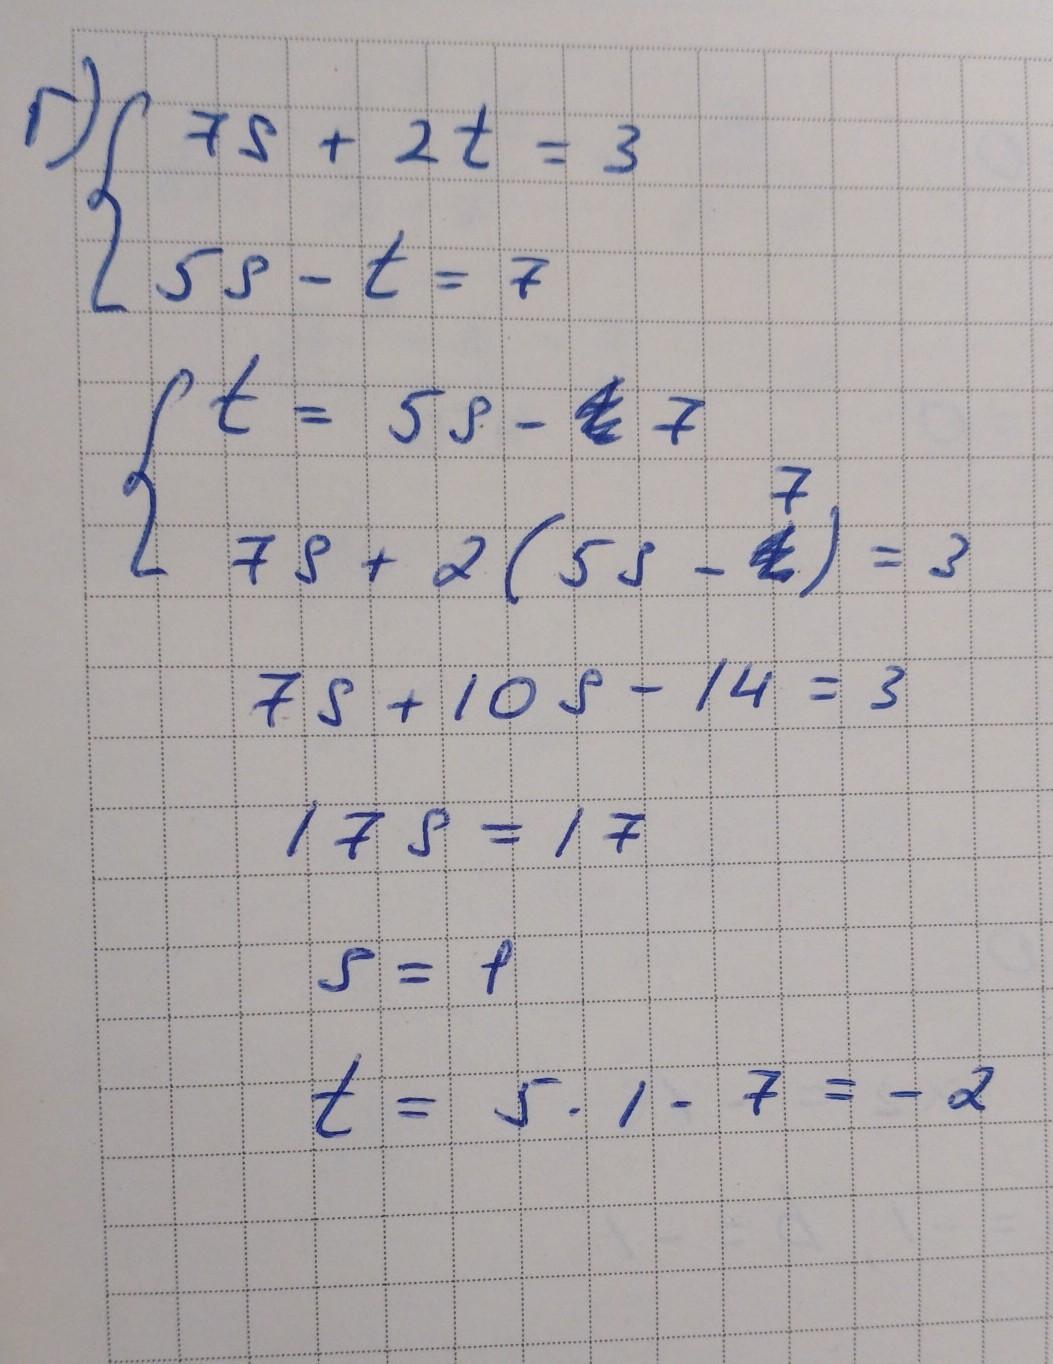 г) { 7s + 2t = 3
5s - t = 7
{ t = 5s - 7
7s + 2(5s - 7) = 3
7s + 10s - 14 = 3
17s = 17
s = 1
t = 5 · 1 - 7 = - 2